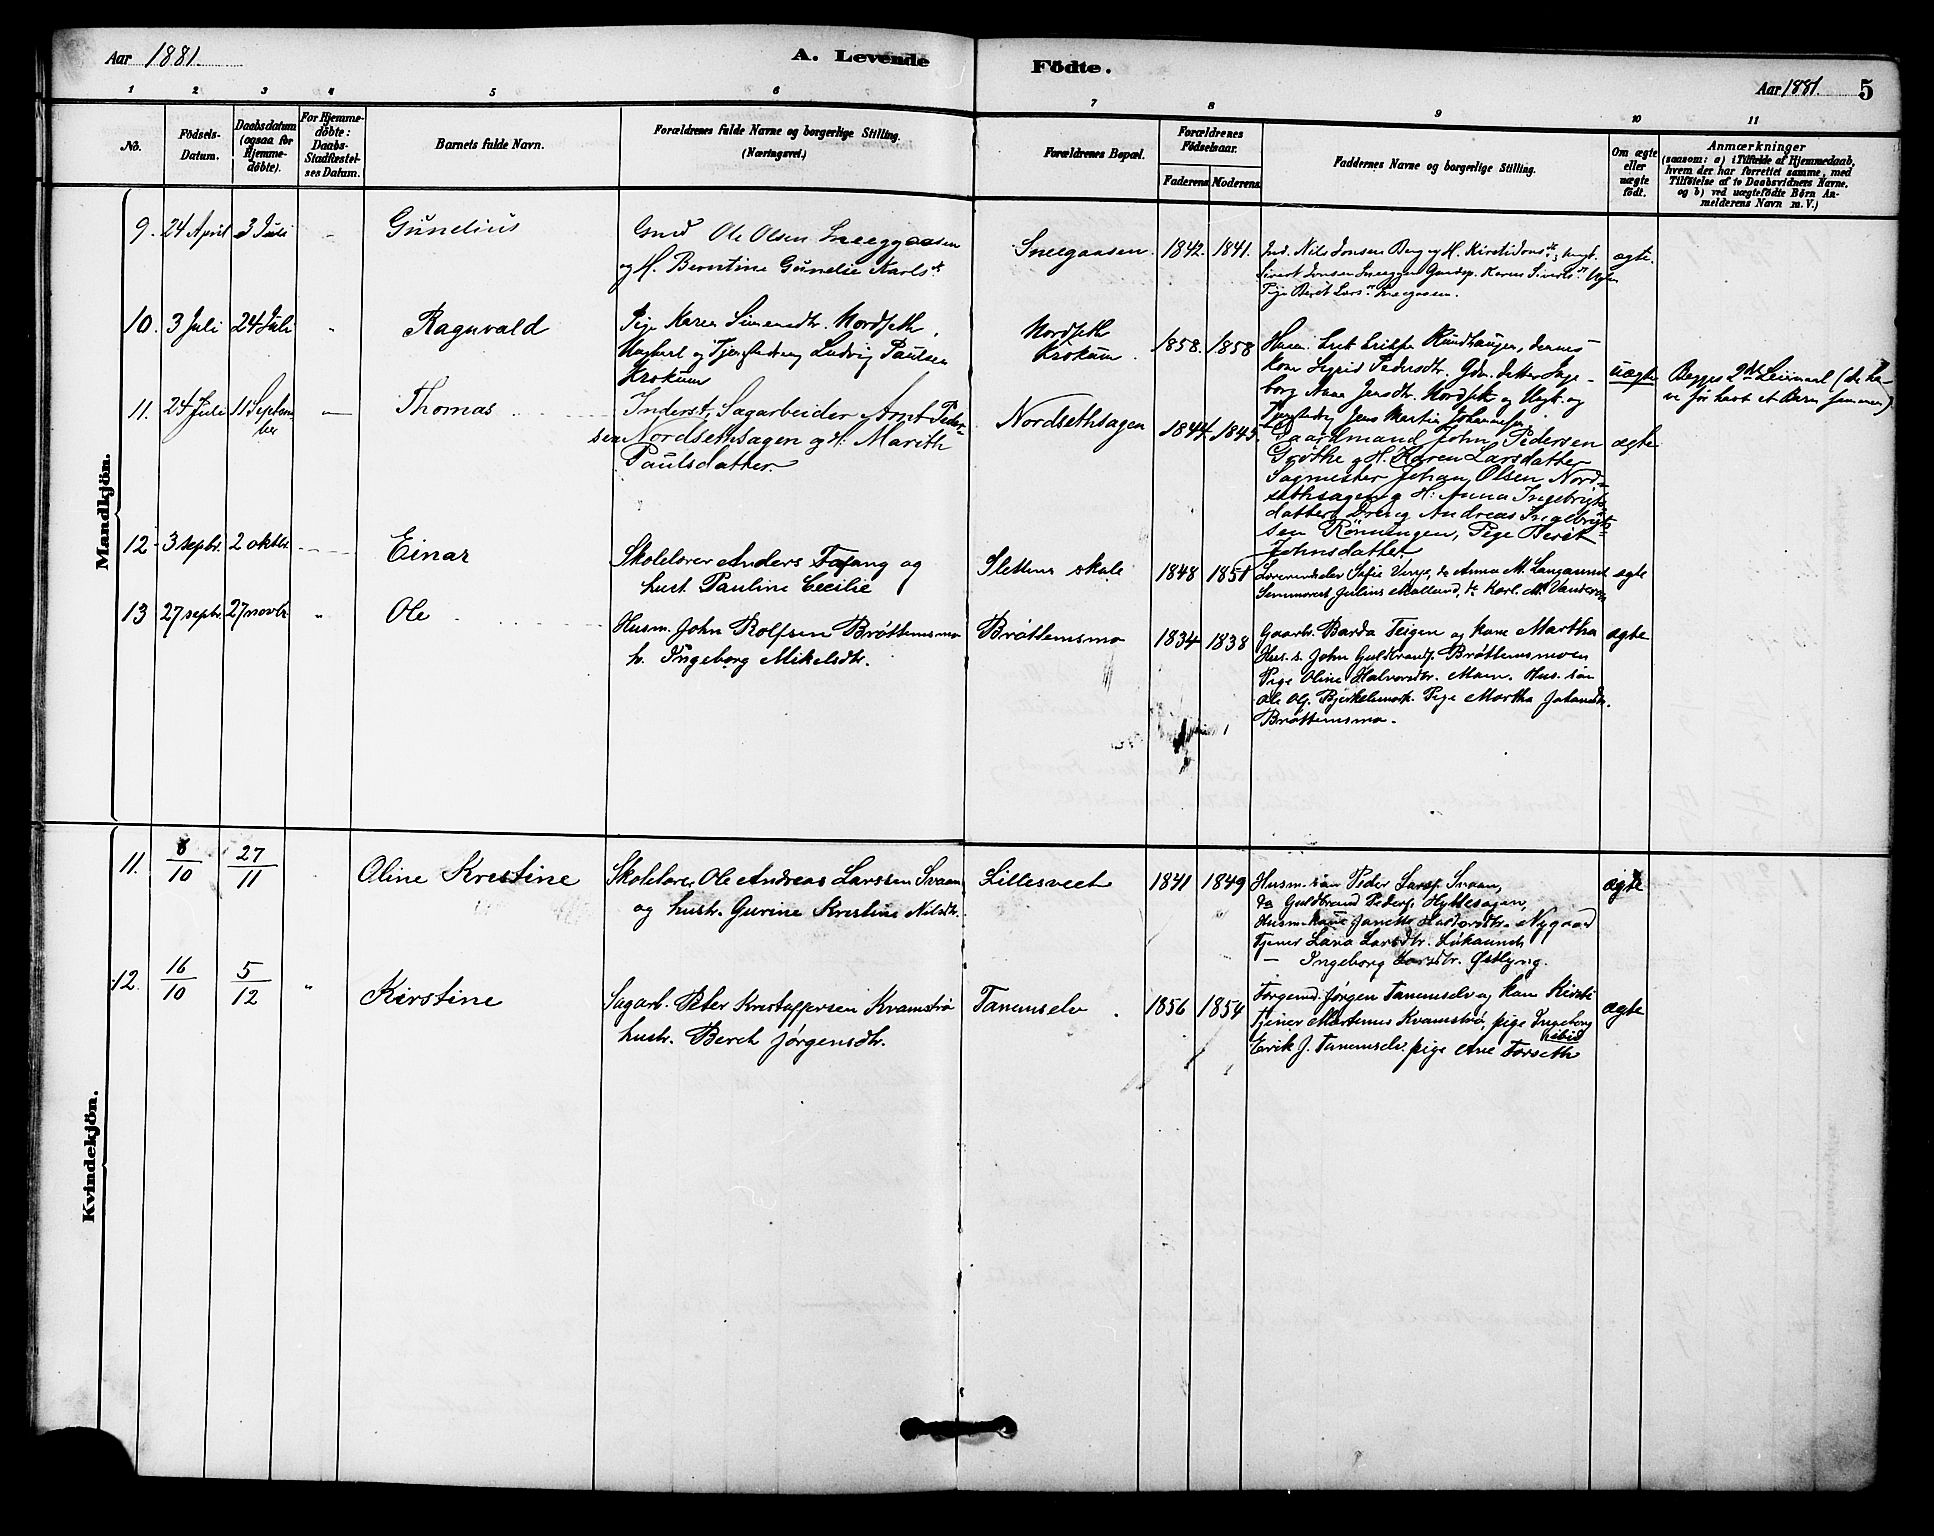 Aar 1881.
A. Levende Födte.
Aar 1881. 5
1 2 3 4 5 6 7 8 9 10 11
No.
Födsels-Datum.
Daabsdatum (ogsaa for Hjemme-döbte).
For Hjemme-döbte: Daabs-Stadfæstel-ses Datum.
Barnets fulde Navn.
Forældrenes fulde Navne og borgerlige Stilling.
(Næringsvei.)
Forældrenes Bopæl.
Forældrenes Födselsaar.
Faderens Moderens
Faddernes Navne og borgerlige Stilling.
Om ægte eller uægte födt.
Anmærkninger
(saasom: a) i Tilfælde af Hjemmedaab,
hvem der har forrettet samme, med
Tilföielse af to Daabsvidners Navne,
og b) ved uægtefödte Börn An-
melderens Navn m. V.)
Mandkjön.
9. 24 April 3 Juli - Gunelius
Gmd Ole Olsen Sneeggaasen
og H. Berntine Gunelie Karlsdr.
Sneegaasen. 1842. 1841.
Ind. Nils Jonsen Berg og H. Kirsti Jonsdr, Ungk.
Sivert Jonsen Sneeggen
Pige Beret Larsdr Sneegaasen.
ægte.
10. 3 Juli 24 Juli " Ragnvald
Pige Karen Simensdtr. Nordseth,
Ungkarl og Tjenstedreng Ludvig Paulsen
Krokum
Nordseth
Krokum. 1858. 1858
Husm. Erik Eriksen Rundhaugen, dennes
Kone Sigrid Pedersdtr. Gdm. datter Inge-
borg Anna Jensdtr. Nordseth og Ungk. og
Tjenstedreng Jens Martin Johannesen
uægte
Begges 2det Leiermaal (de ha-
ve før havt et Barn sammen)
11. 24 Juli 11 Septem-
ber — Thomas
Inderst, Sagarbeider Arnt Peder-
sen Nordsethsagen og H: Marith
Paulsdatter
Nordsethsagen 1844. 1845.
Gaardmand John Pedersen
Grøthe og H. Karen Larsdatter
Sagmester Johan Olsen Nord-
sethsagen og H: Anna Ingebrigts-
datter, Dreng Andreas Ingebrigt-
sen Rønningen, Pige Berit
Johnsdatter
ægte
12 3 septr. 2 oktbr. Einar
Skolelærer Anders Fafang og
hust. Pauline Cecilie
Slettens skole 1848 1851
Lærerindeelev Sofie Vinje, do Anna M. Langaunet
Seminarist Julius Malland, do Karl M.
ægte
13 27 septr. 27 novbr " Ole
Husm. John Rolfsen Brøttemsmo
h. Ingeborg Mikelsdtr.
Brøttemsmo 1834 1838
Gaarbr. Barda Teigen og kone Martha
Hus. s. John Guldbrands. Brøttemsmoen
Pige Oline Halvorsdtr. Moen. Hus. søn
Ole Ols. Bjerkelimo. Pige Martha Johansdtr.
Brøttemsmo.
ægte
Kvindekjön.
11. 8/10 27/11 " Oline Kristine
Skolelærer Ole Andreas Larssen Svaan
og hustr. Gurine Kristine Nilsdtr.
Lillesveet 1841 1849
Husm. søn Peder Lars. Svaan,
do Guldbrand Peders. Hyttesagen,
Husm. kone Janette Halvorsdtr. Nygaard
Tjener Lava Larsdtr. Løkaunet
— Ingeborg Larsdtr. Østlyng.
ægte
12. 16/10 5/12 " Kirstine
Sagarb. Peter Kristoffersen Kvamstrø
hustr. Beret Jørgensdtr.
Tanemselv. 1856 1854
Forgemd. Jørgen Tanemselv og kone Kirsti
Tjener Martenus Kvamstrø, pige Ingeborg
ibid
Erik J. Tanemselv. pige Ane Forseth
ægte